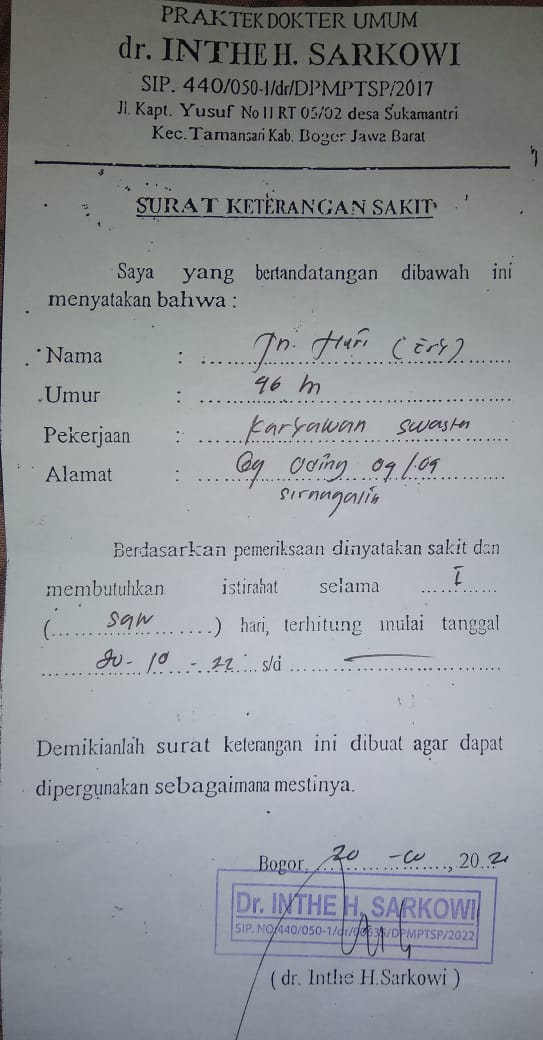 PRAKTEK DOKTER UMUM
dr. INTHE H. SARKOWI
SIP. 440/050-1/dr/DPMPTSP/2017
Jl. Kapt. Yusuf No II RT 05/02 desa Sukamantri
Kec.Tamansari Kab. Bogor Jawa Barat
SURAT KETERANGAN SAKIT
Saya yang bertandatangan dibawah ini
menyatakan bahwa :
Nama : Tn. Huri (Ery)
Umur : 46 th
Pekerjaan : Karyawan swasta
Alamat : Gg Oding 09/09
sirnagalih
Berdasarkan pemeriksaan dinyatakan sakit dan
membutuhkan istirahat selama I
(satu) hari, terhitung mulai tanggal
20-10-22 s/d
Demikianlah surat keterangan ini dibuat agar dapat
dipergunakan sebagaimana mestinya.
Bogor, 20 - 10, 2022
Dr. INTHE H. SARKOWI
SIP. NO.440/050-1/dr/DPMPTSP/2022
( dr. Inthe H.Sarkowi )